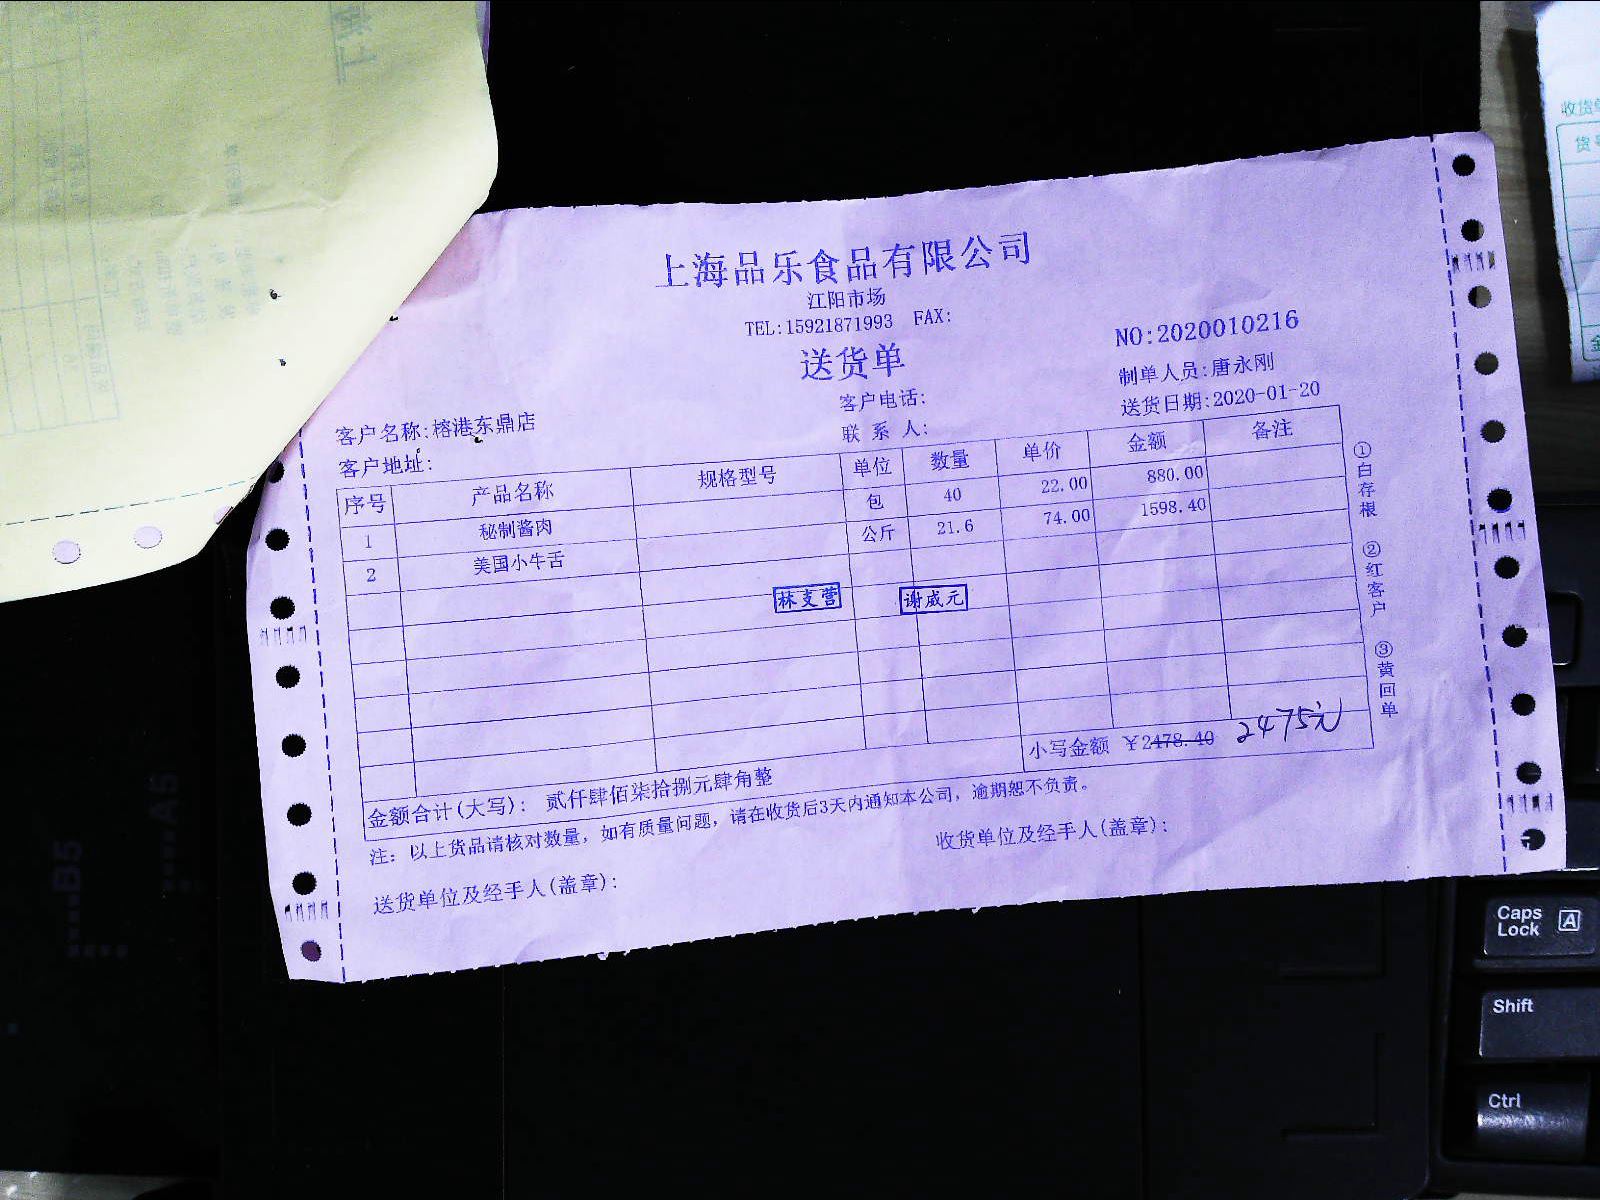 上海品乐食品有限公司
江阳市场
TEL:15921871993 FAX:
送货单
NO:2020010216
制单人员:唐永刚
送货日期:2020-01-20
客户电话:
联 系 人:
客户名称:榕港东鼎店
客户地址:
序号 产品名称 规格型号 单位 数量 单价 金额 备注
1 秘制酱肉 包 40 22.00 880.00
2 美国小牛舌 公斤 21.6 74.00 1598.40
林支营 谢威元
小写金额 ￥2478.40 2475元
金额合计(大写): 贰仟肆佰柒拾捌元肆角整
注: 以上货品请核对数量, 如有质量问题, 请在收货后3天内通知本公司, 逾期恕不负责。
送货单位及经手人(盖章):
收货单位及经手人(盖章):
①白存根 ②红客户 ③黄回单
收货单
货号
B5
A5
Caps Lock A
Shift
Ctrl